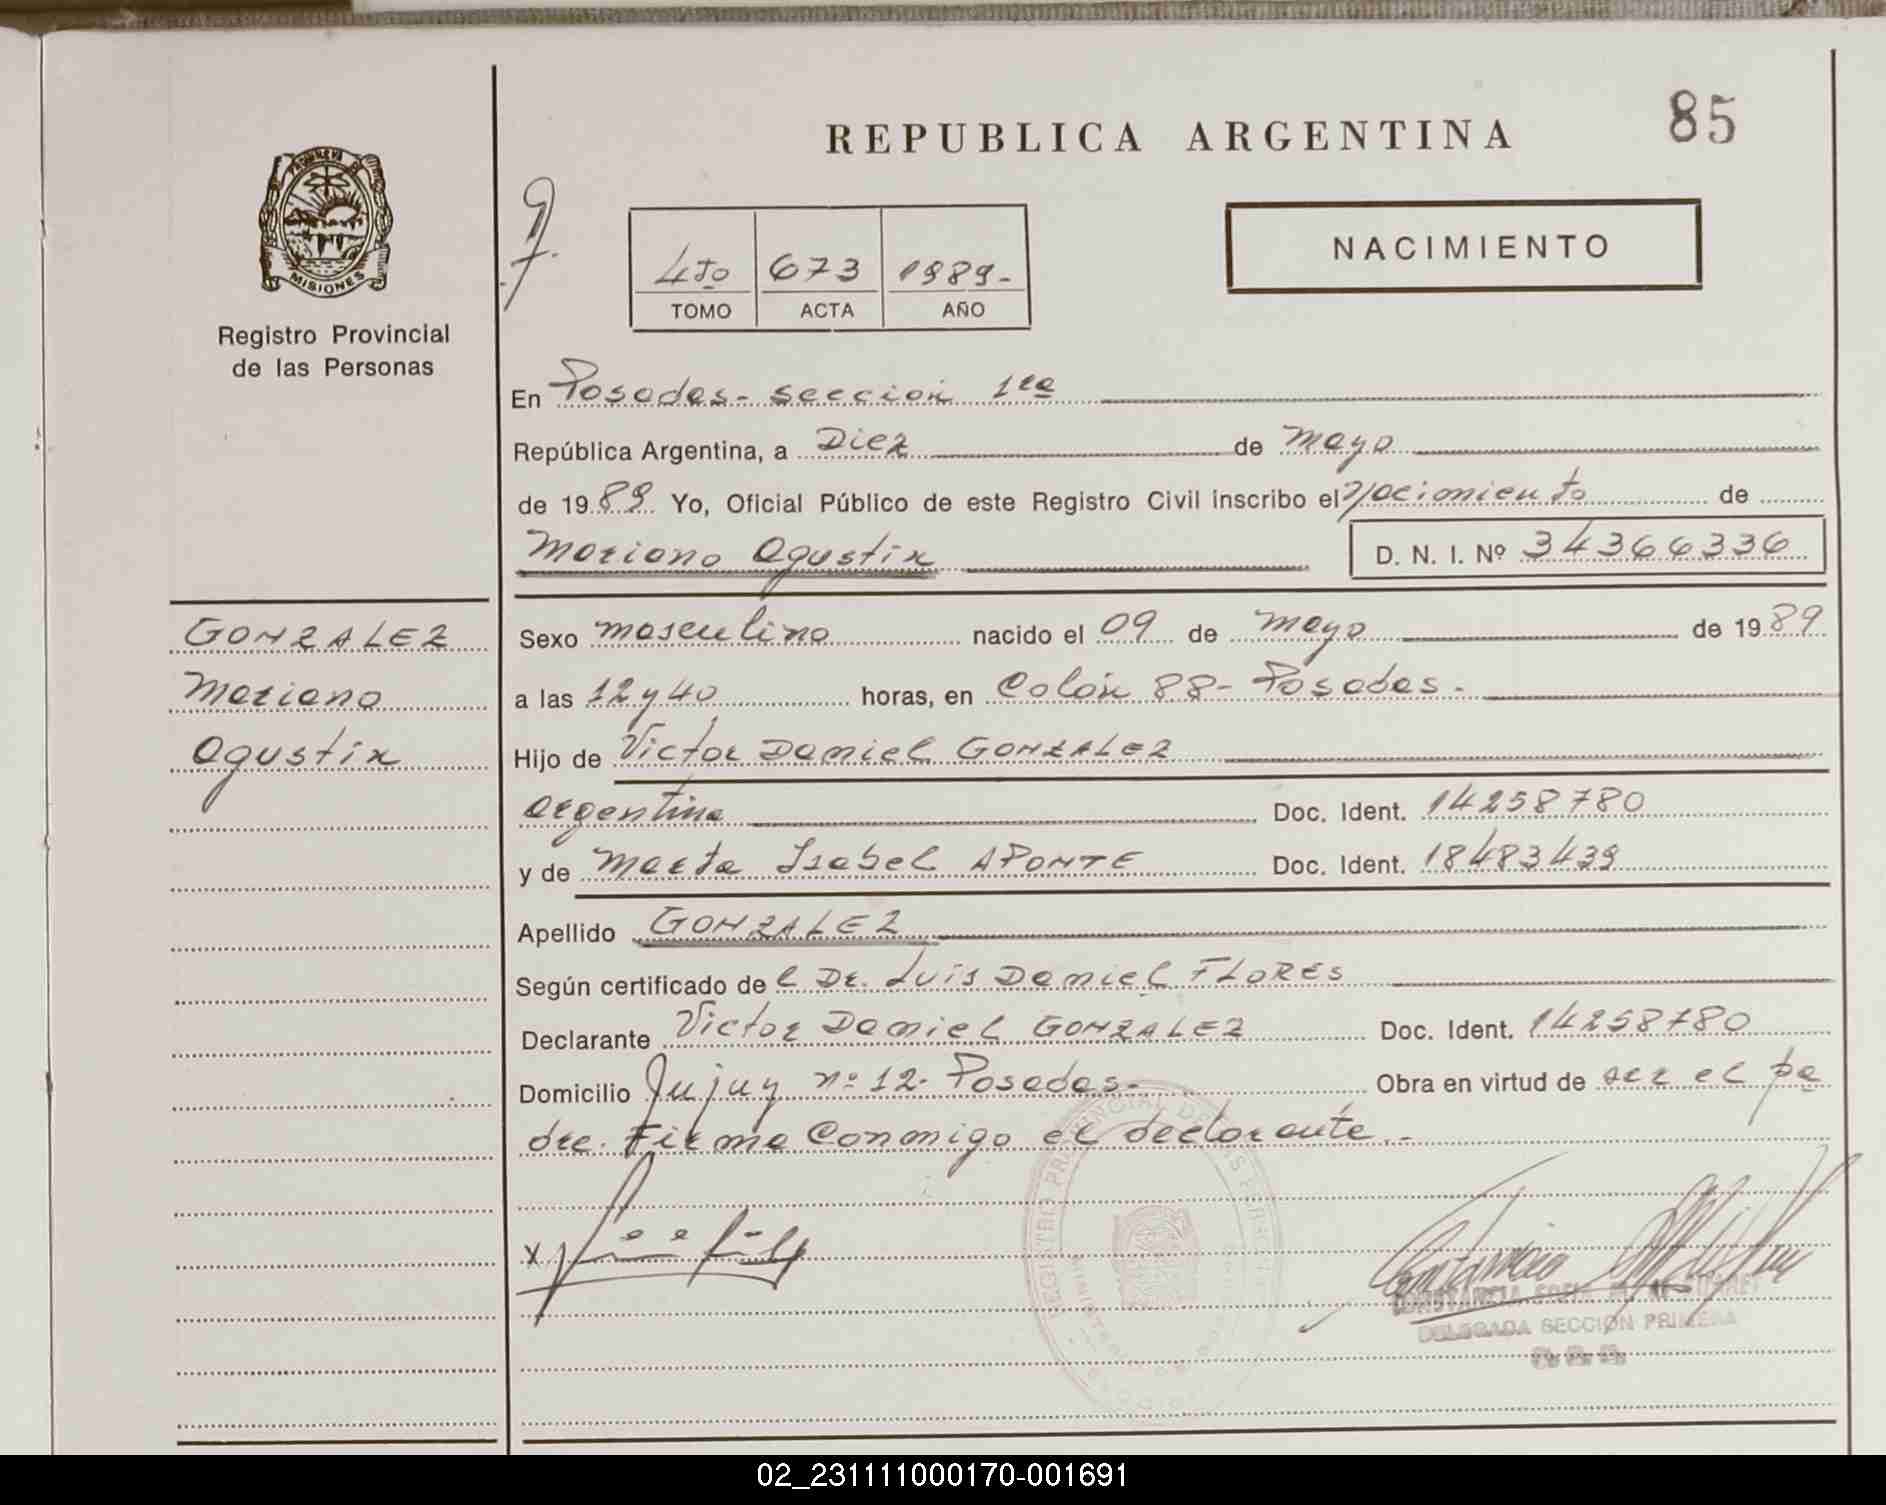 REPUBLICA ARGENTINA
85
PROVINCIA DE
MISIONES
Registro Provincial
de las Personas
4to 673 1989-
TOMO ACTA AÑO
NACIMIENTO
En Posadas- sección 1ra
República Argentina, a Diez de mayo
de 1989 Yo, Oficial Público de este Registro Civil inscribo el nacimiento de
Mariano Agustín D. N. I. Nº 34366336
GONZALEZ
Mariano
Agustín
Sexo masculino nacido el 09 de mayo de 1989
a las 12 y 40 horas, en Colón 88- Posadas.
Hijo de Victor Daniel GONZALEZ
argentina Doc. Ident. 14258780
y de Marta Isabel APONTE Doc. Ident. 18483439
Apellido GONZALEZ
Según certificado del Dr. Luis Daniel FLORES
Declarante Victor Daniel GONZALEZ Doc. Ident. 14258780
Domicilio Jujuy nº 12- Posadas- Obra en virtud de ser el pa
dre. Firma conmigo el declarante.-
X
REGISTRO PROVINCIAL DE LAS PERSONAS
CONSTANCIA SOFIA
DELEGADA SECCIÓN PRIMERA
02_231111000170-001691